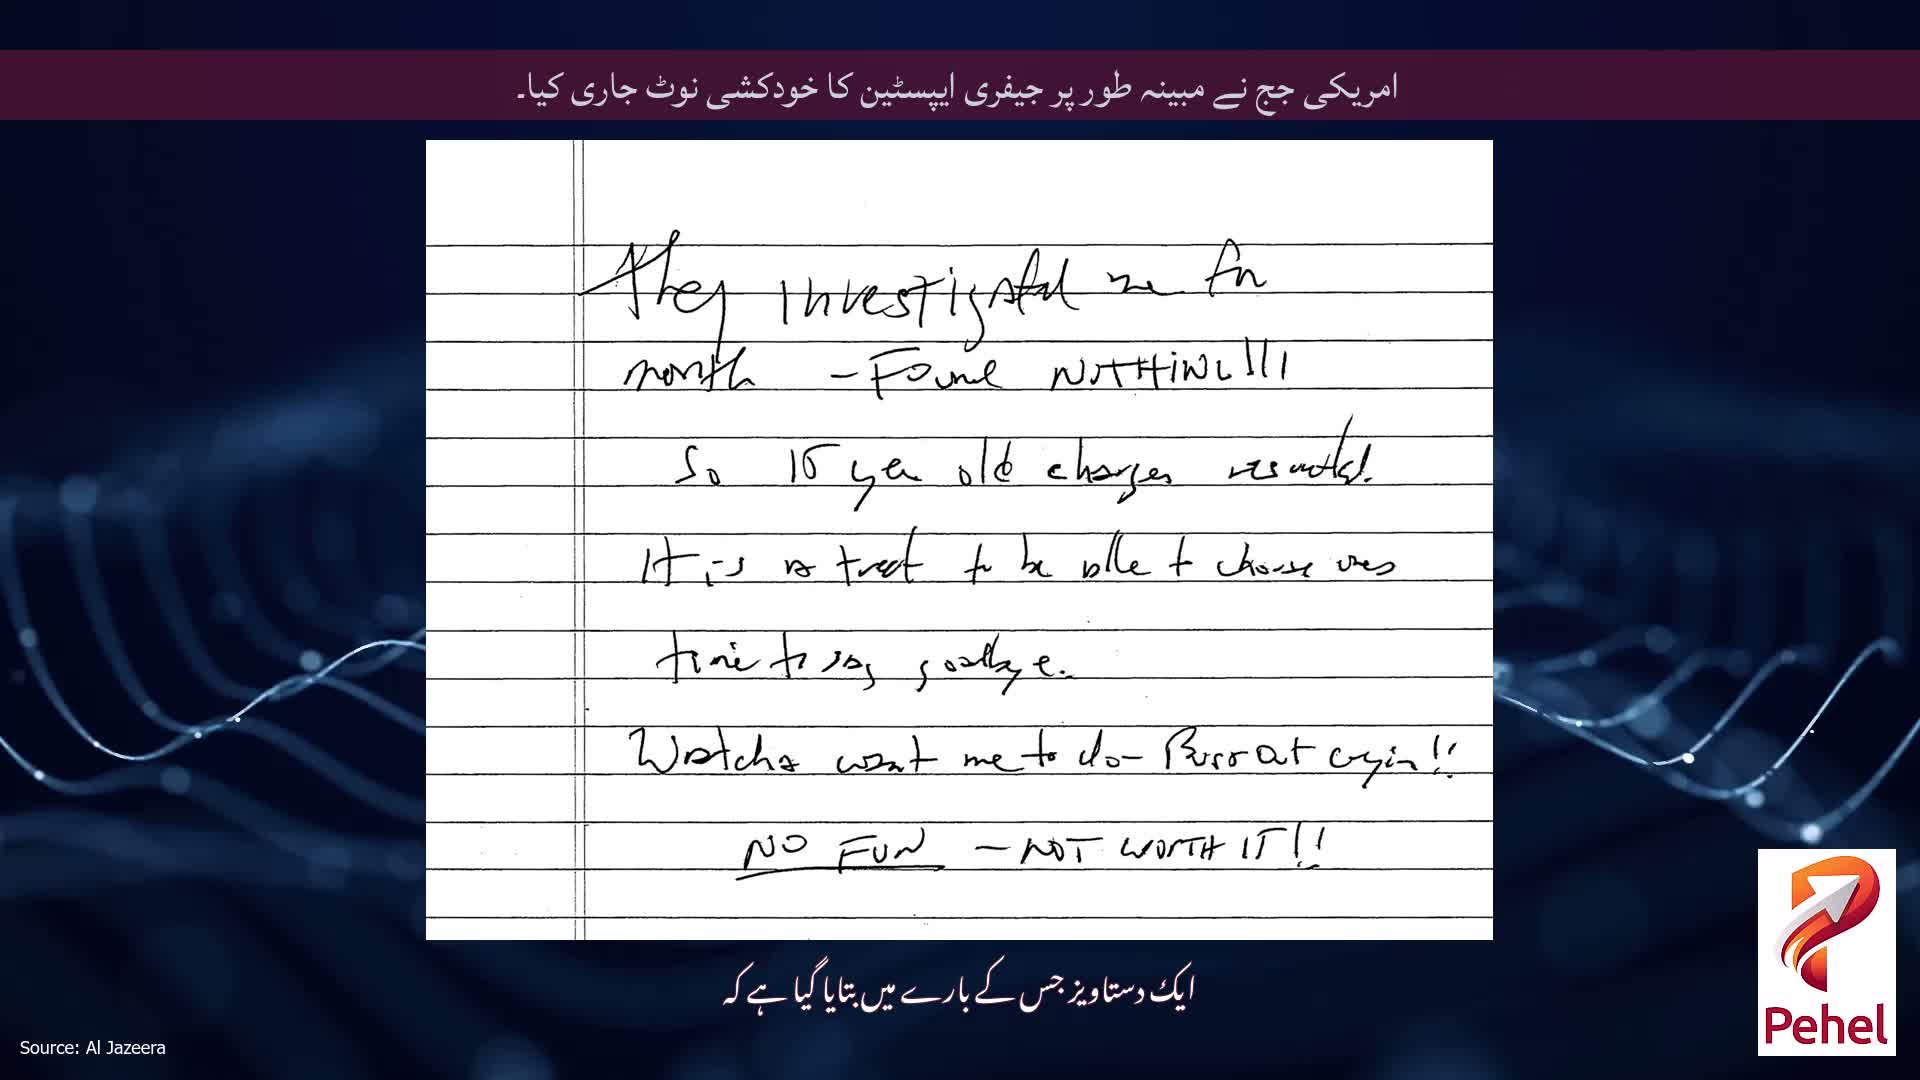 امریکی جج نے مبینہ طور پر جیفری ایپسٹین کا خودکشی نوٹ جاری کیا۔
They investigated me for
month - Found NOTHING!!!
So 15 year old charges resulted.
It is a treat to be able to choose ones
time to say goodbye.
Watcha want me to do - Burst out cryin!!
NO FUN - NOT WORTH IT!!
ایک دستاویز جس کے بارے میں بتایا گیا ہے کہ
Source: Al Jazeera
Pehel